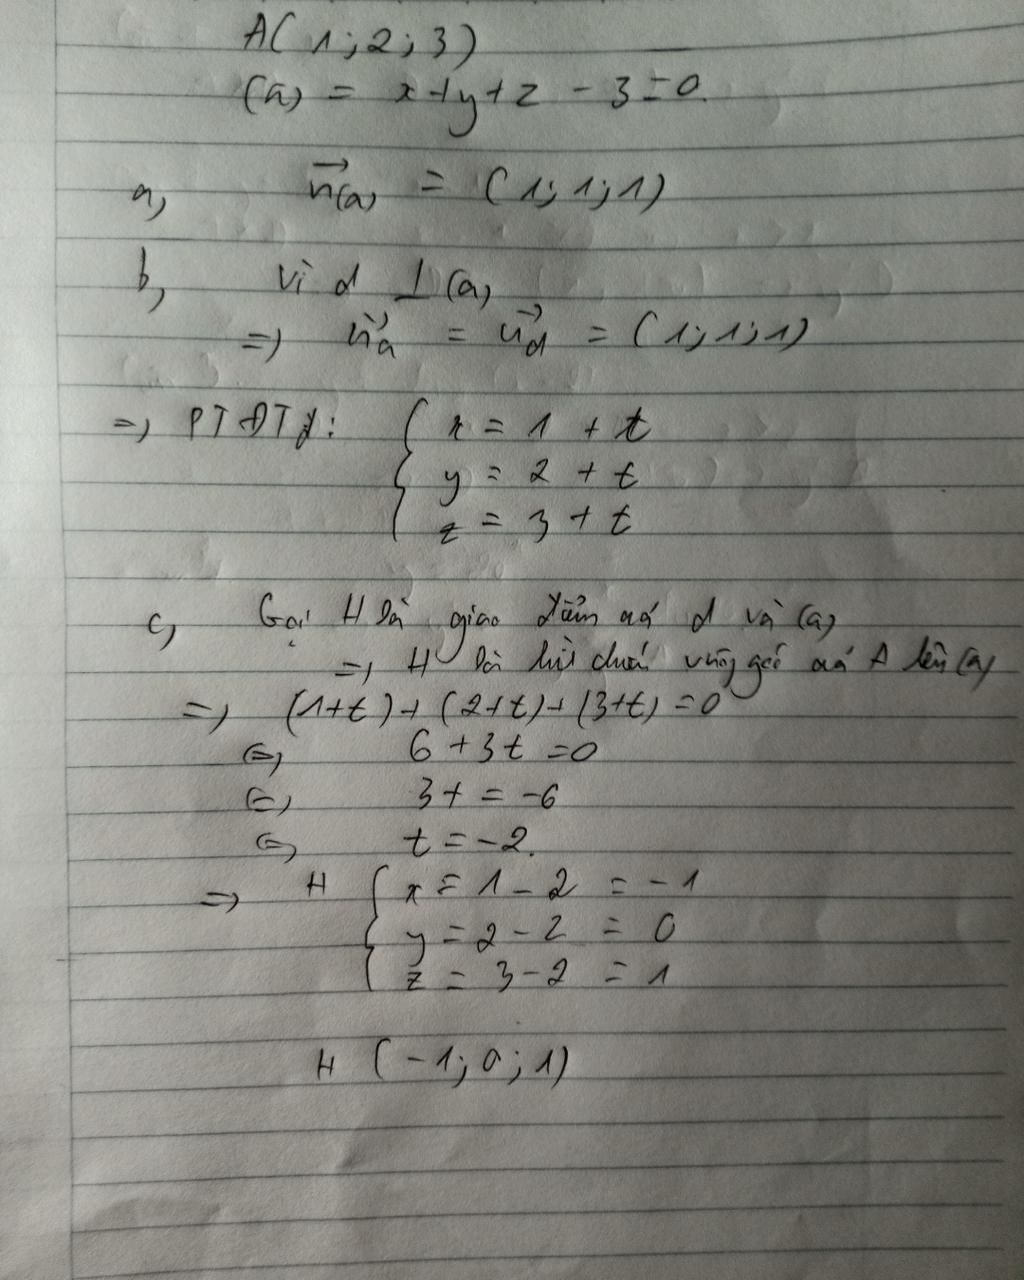 A(1;2;3)
(α) = x+y+z - 3=0.
a, n⃗(α) = (1;1;1)
b, Vì d ⊥ (α)
=) n⃗α = u⃗d = (1;1;1)
=) PTĐT d: { x = 1 + t
y = 2 + t
z = 3 + t
c, Gọi H là giao điểm của d và (α)
=) H là hình chiếu vuông góc của A lên (α)
=) (1+t)+(2+t)+(3+t)=0
(=) 6+3t=0
(=) 3t = -6
(=) t = -2.
=> H { x = 1 - 2 = -1
y = 2 - 2 = 0
z = 3 - 2 = 1
H (-1;0;1)